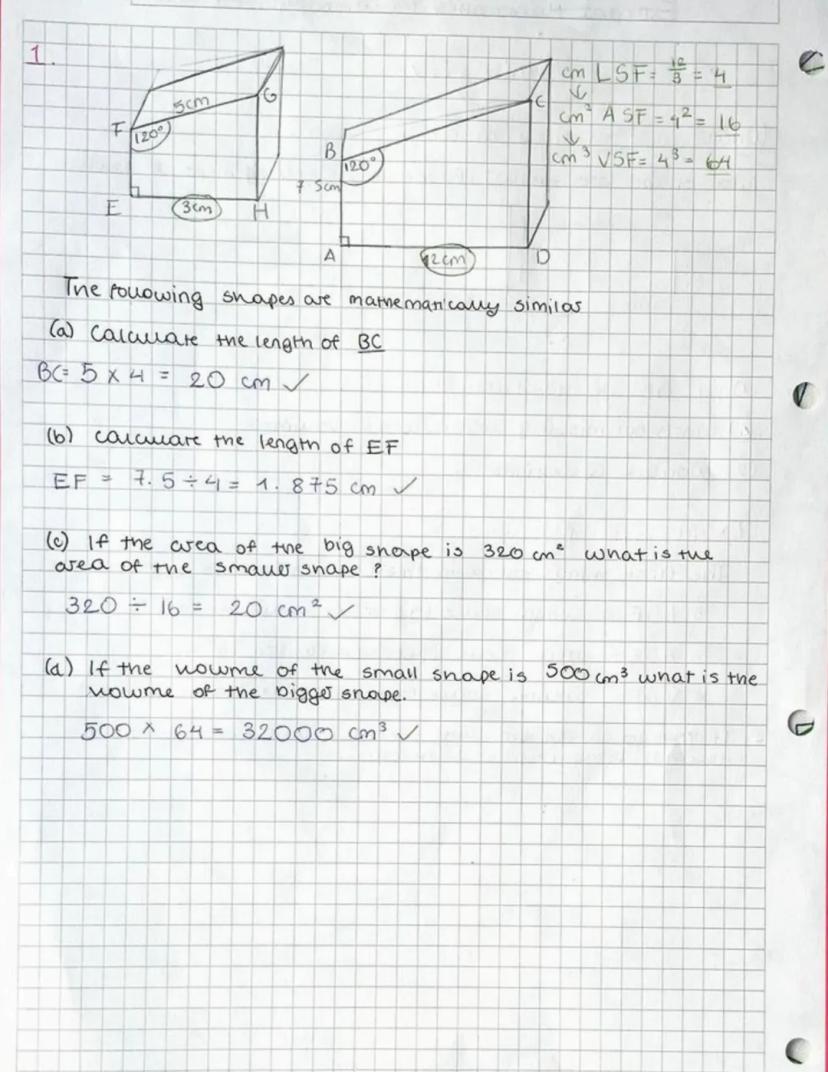 1.
5cm
G
F
120°
E
3cm
H
B
120°
7.5cm
A
12cm
D
C
cm LSF = 12/3 = 4
↓
cm² ASF = 4² = 16
↓
cm³ VSF = 4³ = 64
The following shapes are mathematically similar
(a) Calculate the length of BC
BC = 5 × 4 = 20 cm ✓
(b) calculate the length of EF
EF = 7.5 ÷ 4 = 1.875 cm ✓
(c) If the area of the big shape is 320 cm² what is the
area of the smaller shape ?
320 ÷ 16 = 20 cm² ✓
(d) If the volume of the small shape is 500 cm³ what is the
volume of the bigger shape.
500 × 64 = 32000 cm³ ✓